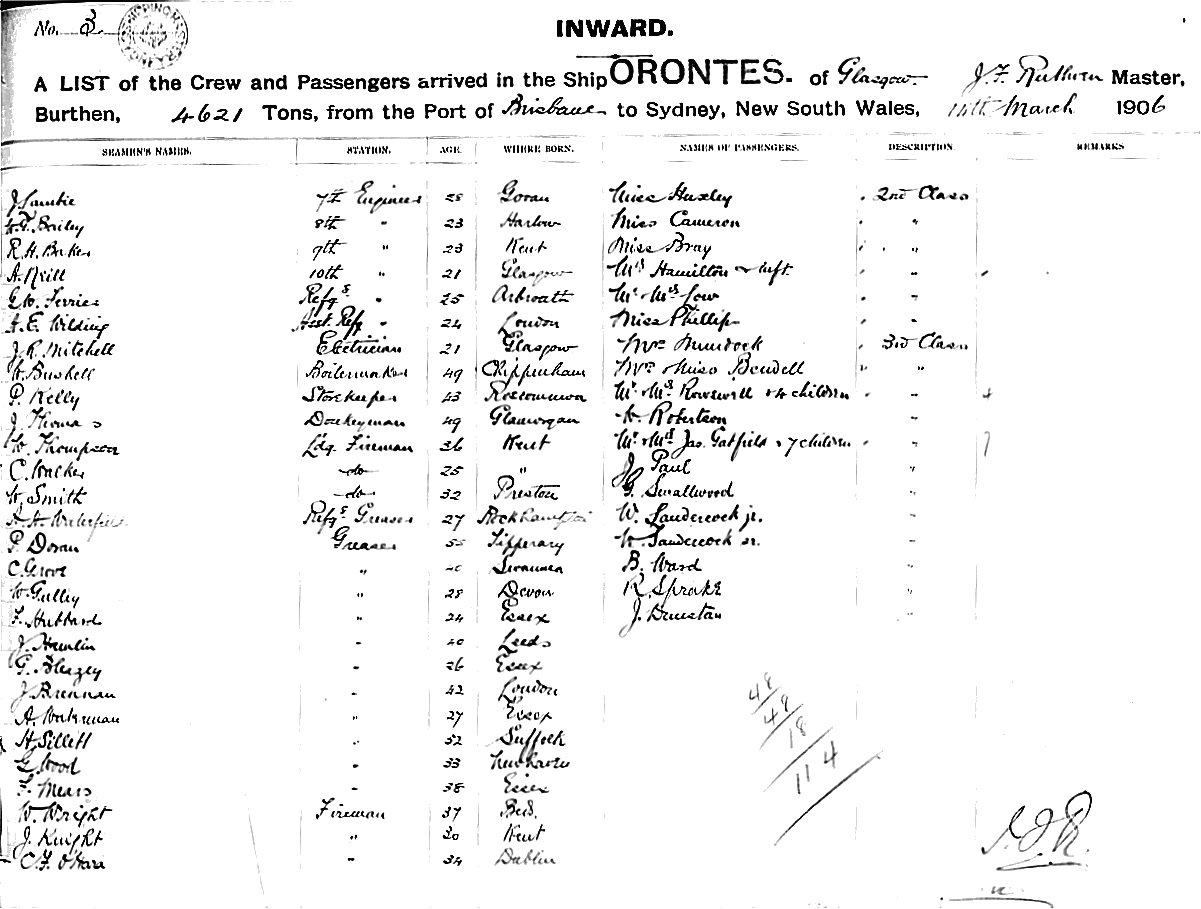 No. 3
INWARD.
A LIST of the Crew and Passengers arrived in the Ship ORONTES. of Glasgow J. F. Ruthven Master,
Burthen, 4621 Tons, from the Port of Brisbane to Sydney, New South Wales, 14th March 1906
SEAMEN'S NAMES. STATION. AGE. WHERE BORN. NAMES OF PASSENGERS. DESCRIPTION. REMARKS
7th Engineer 28 Govan Miss Huxley 2nd Class
Bailey 8th " 23 Harlow Miss Cameron "
R. H. Baker 9th " 23 Kent Miss Bray "
A. Neill 10th " 21 Glasgow Hamilton "
G. W. Ferrier Refg " 25 Arbroath Mr & Mrs Low "
A. E. Wilding Asst. Refg " 24 London Miss Phillips "
J. R. Mitchell Electrician 21 Glasgow Mrs Murdock 3rd Class
W. Bushell Boilermaker 49 Chippenham Miss Bendell "
P. Kelly Storekeeper 43 Roscommon Mr & Mrs Rowswill & 4 children " 4
J. Thomas Donkeyman 49 Glamorgan W. Robertson "
W. Thompson Ldg. Fireman 36 Kent Mr & Mrs Jas. Gatfield & 7 children " 7
C. Walker do 25 " J. Paul "
W. Smith do 32 Preston G. Smallwood "
Refgs Greaser 27 Rockhampton W. Sandercock jr. "
P. Doran Greaser 55 Tipperary W. Sandercock sr. "
C. Grove " Swansea B. Ward "
W. Gulley " 28 Devon R. Sprake "
F. Hubbard " 24 Essex J. Dunstan "
J. Hamlin " 40 Leeds
G. Bleazey " 26 Essex
J. Brennan " 42 London
A. Waterman " 27 Essex
H. Sillett " 32 Suffolk
G. Wood " 33 Newhaven
F. Mears " 38 Essex
W. Wright Fireman 37 Beds.
J. Knight " 30 Kent
C. F. O'Hara " 34 Dublin
48
48
18
114